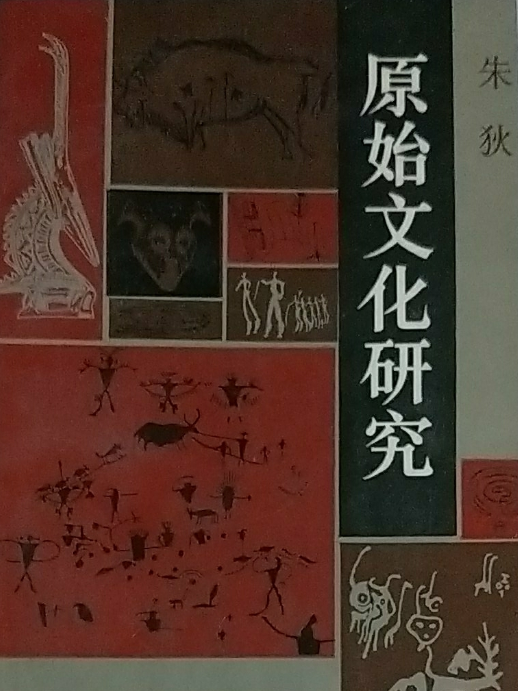 朱狄
原始文化研究